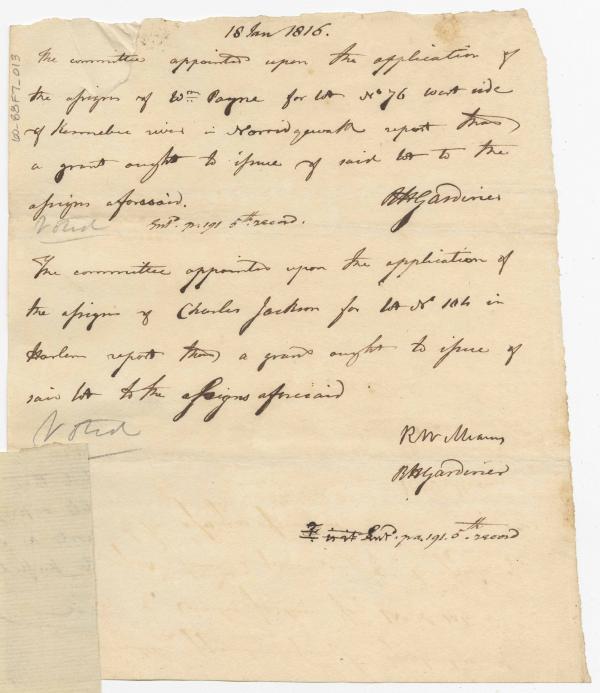 18 Jan 1816.
The committee appointed upon the application of
the assigns of Wm Payne for lot No 76 west side
of Kennebec river in Norridgewalk report that
a grant ought to issue of said lot to the
assigns aforesaid.
RHGardiner
Voted
Entd. p. 191 5th record.
The committee appointed upon the application of
the assigns of Charles Jackson for lot No 104 in
Harlem report that a grant ought to issue of
said lot to the assigns aforesaid
Voted
R W
RHGardiner
is it Entd. pa. 191. 5th record
60-88F7_013